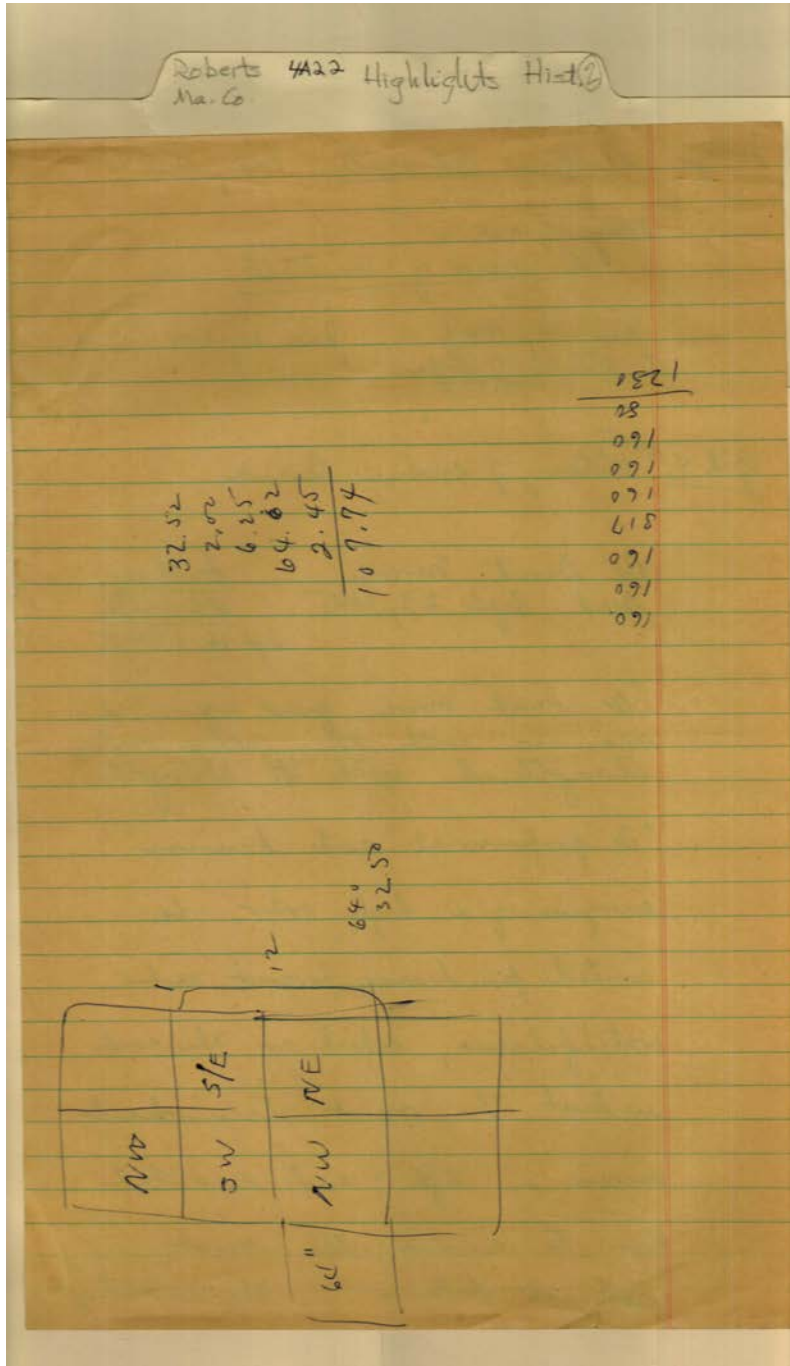 Roberts 4A22 Highlights Hist. 2
Ma. Co.
32.52
2.00
6.25
64.62
2.45
107.74
160
160
160
160
160
160
80
1230
640
32.50
1
12
S/E
NE
NW
SW
NW